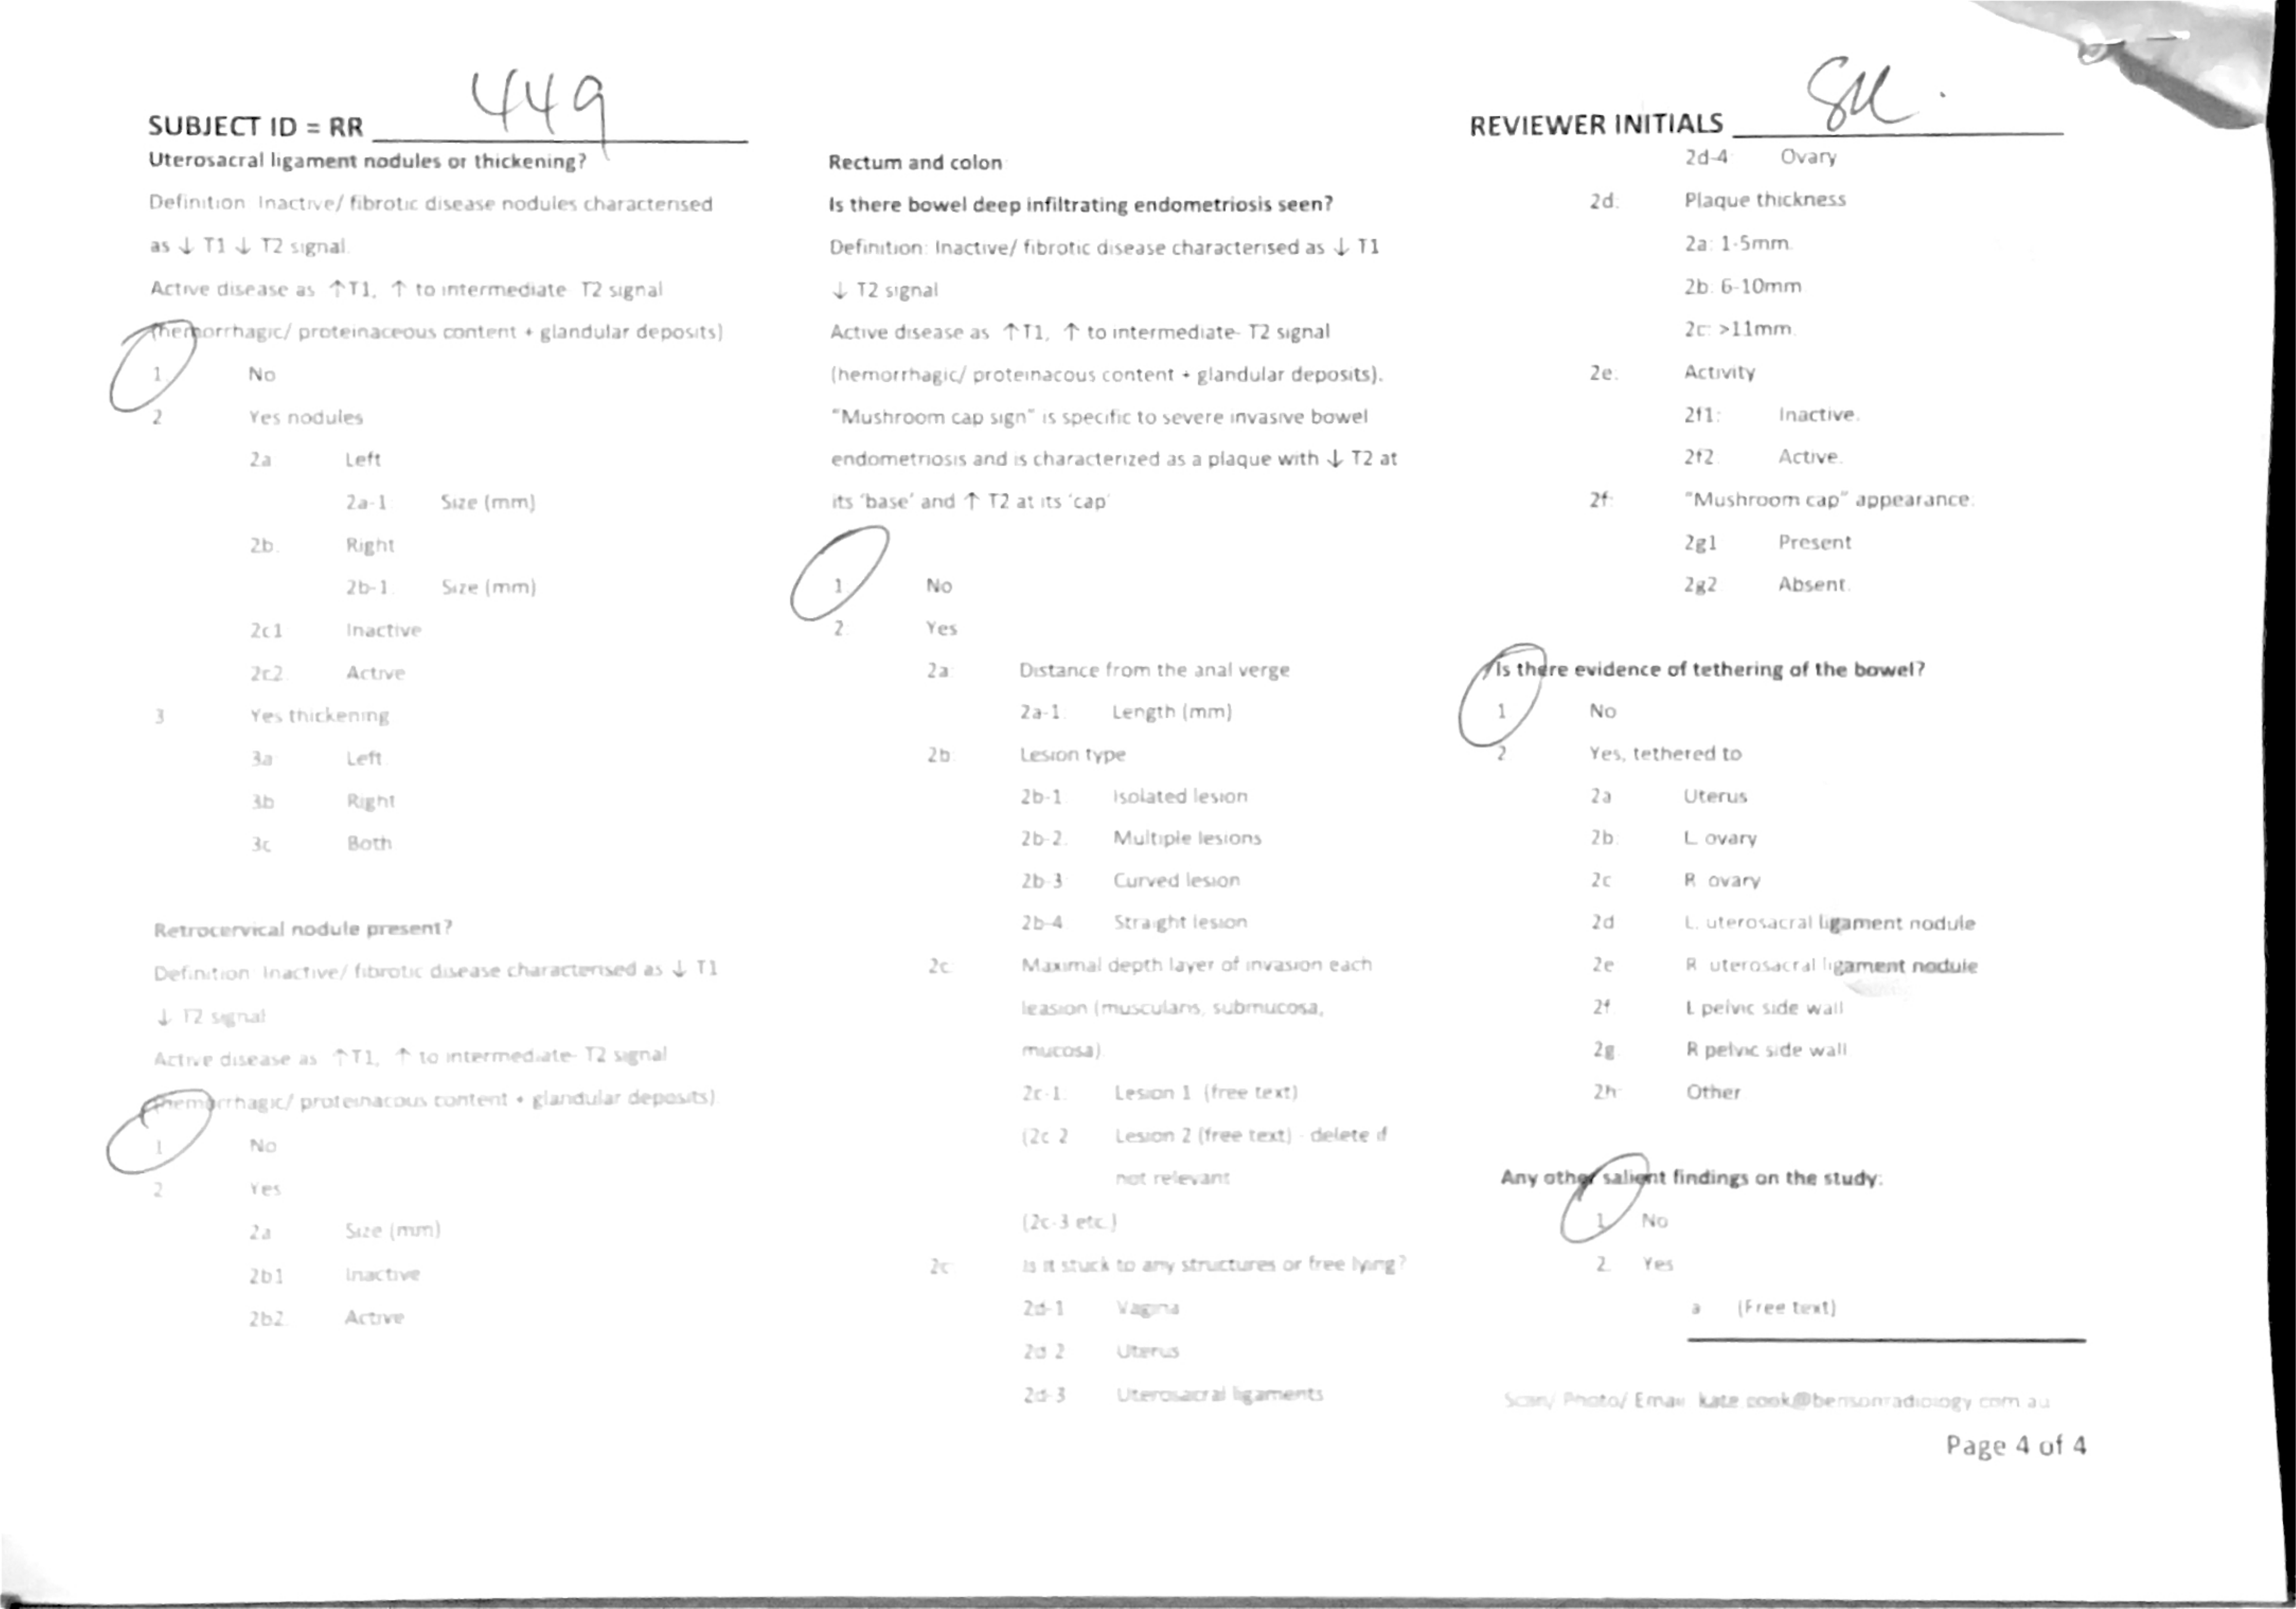 SUBJECT ID = RR 449
REVIEWER INITIALS
Uterosacral ligament nodules or thickening?
Definition Inactive/ fibrotic disease nodules characterised
as ↓ T1 ↓ T2 signal.
Active disease as ↑T1, ↑ to intermediate- T2 signal
(hemorrhagic/ proteinaceous content + glandular deposits)
1 No
2 Yes nodules
2a Left
2a-1 Size (mm)
2b. Right
2b-1. Size (mm)
2c1 Inactive
2c2. Active
3 Yes thickening
3a Left
3b Right
3c Both
Retrocervical nodule present?
Definition Inactive/ fibrotic disease characterised as ↓ T1
↓ T2 signal
Active disease as ↑T1, ↑ to intermediate- T2 signal
(hemorrhagic/ proteinacous content + glandular deposits)
1 No
2 Yes
2a Size (mm)
2b1 Inactive
2b2 Active
Rectum and colon
Is there bowel deep infiltrating endometriosis seen?
Definition: Inactive/ fibrotic disease characterised as ↓ T1
↓ T2 signal
Active disease as ↑T1, ↑ to intermediate- T2 signal
(hemorrhagic/ proteinacous content + glandular deposits).
"Mushroom cap sign" is specific to severe invasive bowel
endometriosis and is characterized as a plaque with ↓ T2 at
its 'base' and ↑ T2 at its 'cap'
1 No
2. Yes
2a: Distance from the anal verge
2a-1: Length (mm)
2b: Lesion type
2b-1. Isolated lesion
2b-2. Multiple lesions
2b-3 Curved lesion
2b-4 Straight lesion
2c: Maximal depth layer of invasion each
leasion (muscularis, submucosa,
mucosa)
2c-1: Lesion 1 (free text)
(2c-2 Lesion 2 (free text) - delete if
not relevant
(2c-3 etc.)
2c: Is it stuck to any structures or free lying?
2d-1 Vagina
2d-2 Uterus
2d-3 Uterosacral ligaments
2d-4: Ovary
2d: Plaque thickness
2a: 1-5mm.
2b: 6-10mm
2c: >11mm.
2e. Activity
2f1: Inactive.
2f2. Active.
2f: "Mushroom cap" appearance.
2g1 Present
2g2. Absent.
Is there evidence of tethering of the bowel?
1 No
2 Yes, tethered to
2a Uterus
2b. L ovary
2c R ovary
2d L. uterosacral ligament nodule
2e R uterosacral ligament nodule
2f L pelvic side wall
2g. R pelvic side wall
2h: Other
Any other salient findings on the study:
1. No
2. Yes
a (Free text)
Scan/ Photo/ Email kate.cook@bensonradiology.com.au
Page 4 of 4